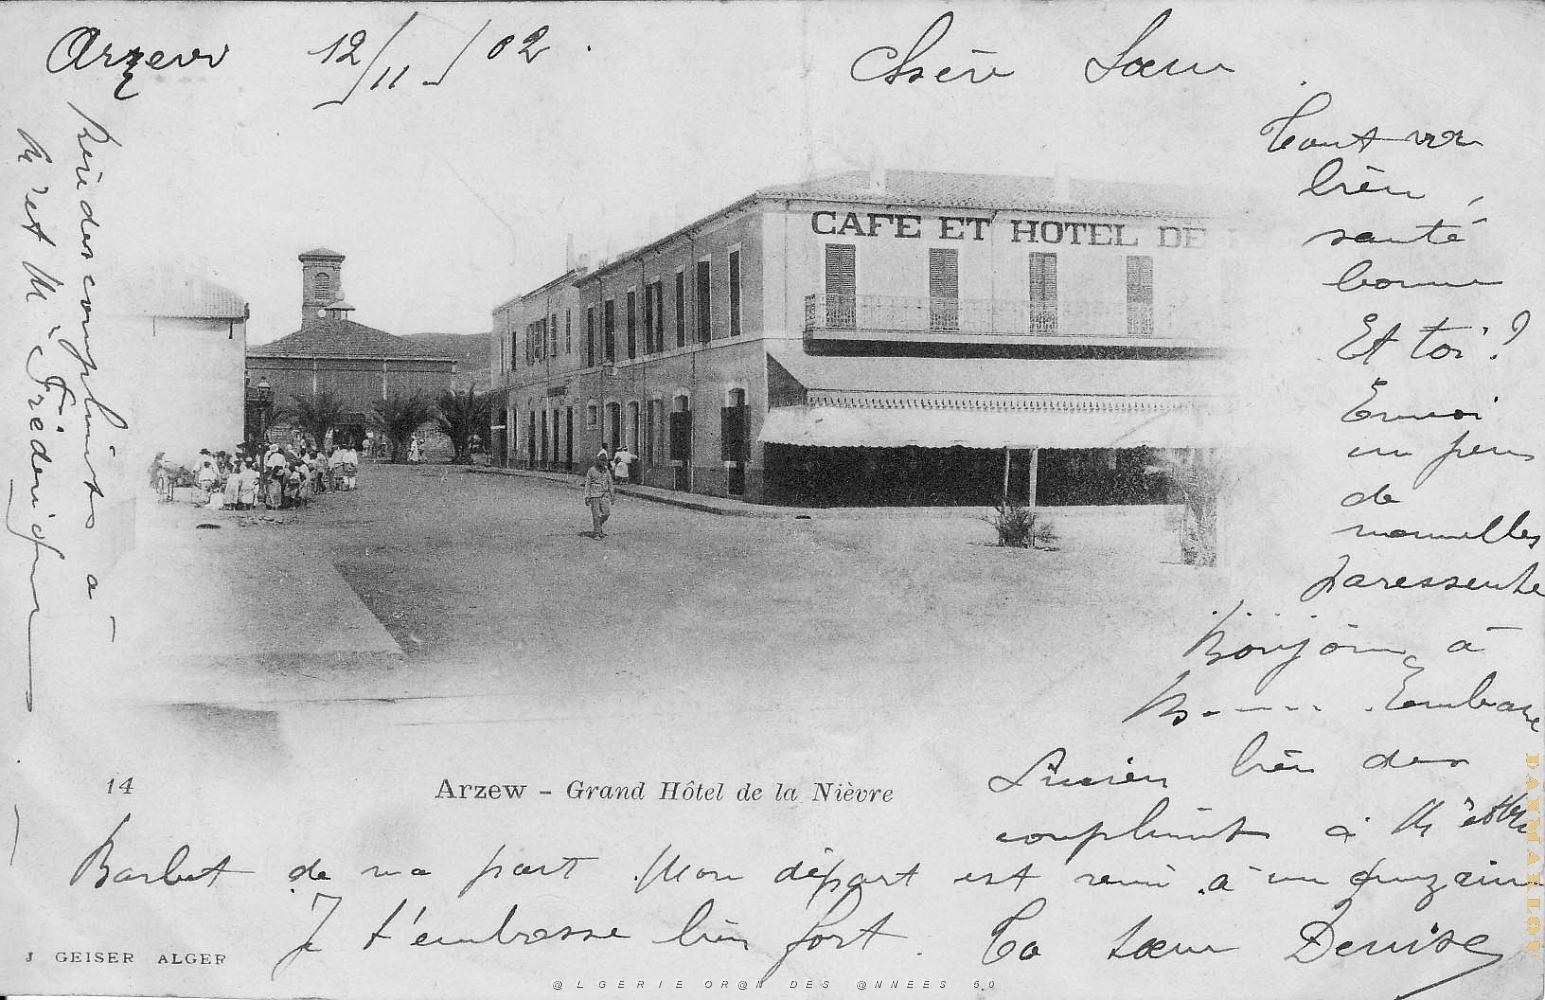 Arzew 12/11/02.
Chère Sœur
Tout va
bien,
santé
bonne
Et toi?
Envoi
un peu
de
nouvelles
paresseuse
Bonjour à
Embrasse
Lucien bien des
compliments à Mr et Mme
Barbet de ma part Mon départ est remi à une quinzaine
Je t'embrasse bien fort. Ta sœur Denise
bien des compliments à
Mr et Me Frédéric
CAFÉ ET HOTEL DE
14
Arzew - Grand Hôtel de la Nièvre
J GEISER ALGER
@LGERIE OR@N DES @NNEES 50
DANMARLOU